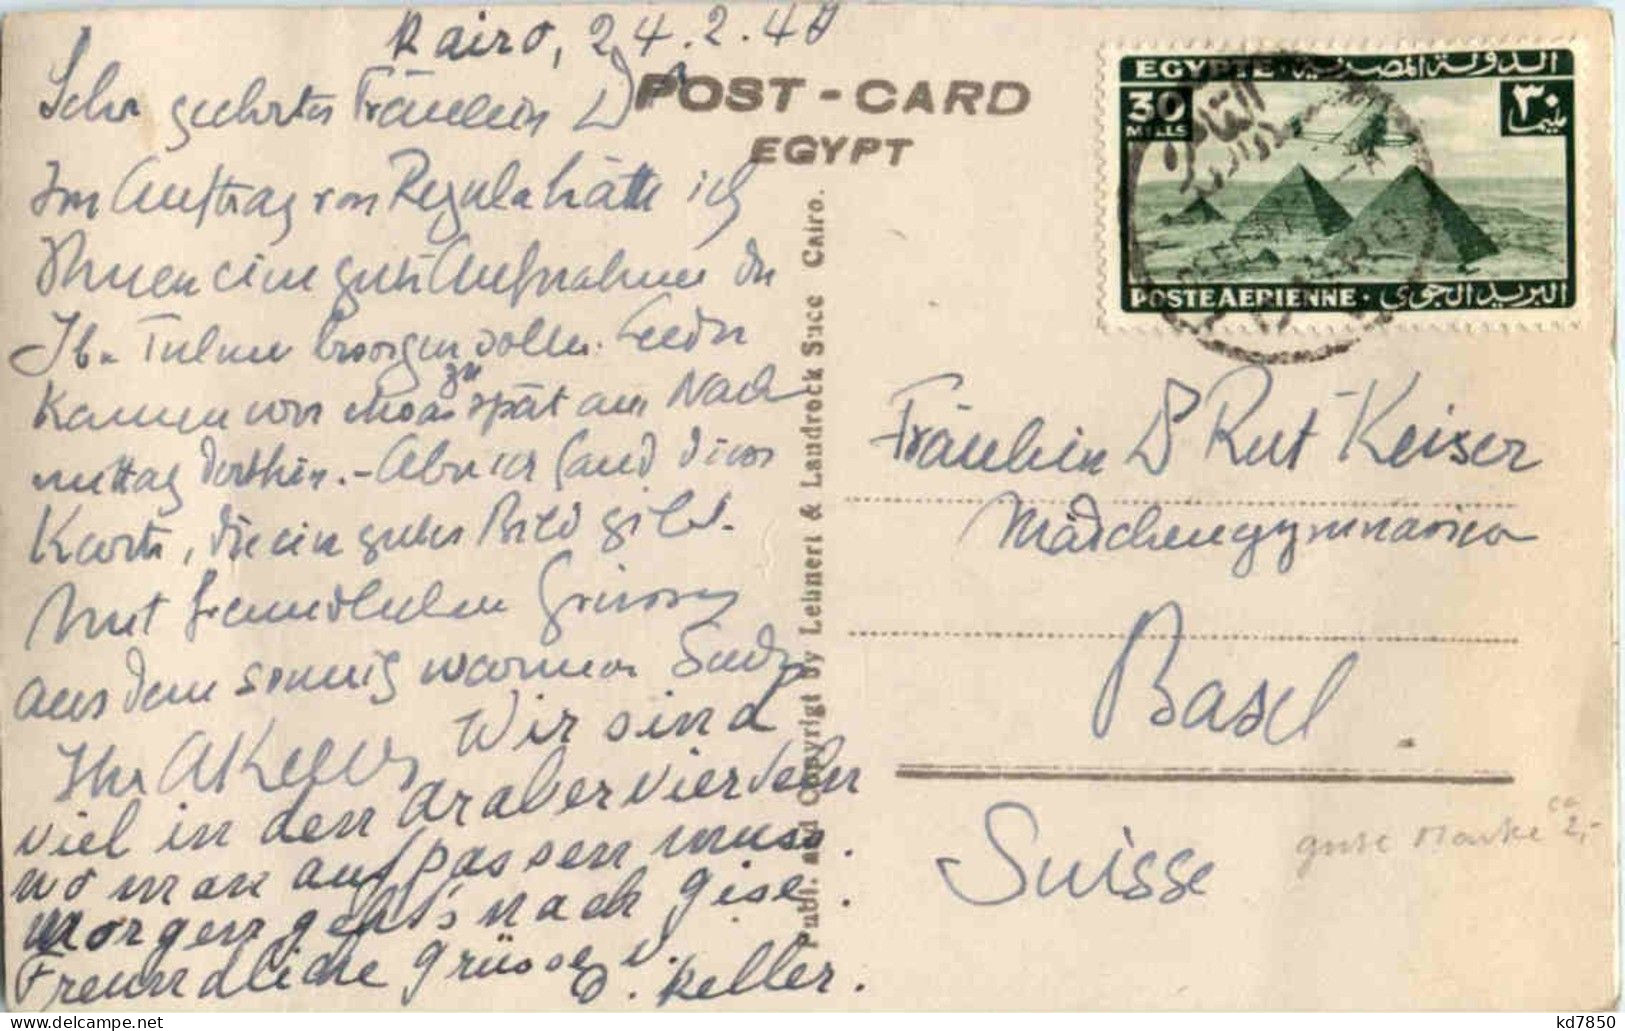 Kairo, 24.2.4
Sehr geehrtes Fräulein D
Im Auftrag von Regula hätte ich
Ihnen eine gute Aufnahme der
Ibn Tulun besorgen sollen. Leider
kamen wir etwas zu spät am Nach
mittag dorthin. - Aber ich fand diese
Karte, die ein gutes Bild gibt.
Mit freundlichen Grüssen
aus dem sonnig warmen Süden
Ihr AKeller
Wir sind
viel in den Arabervierdeln
wo man aufpassen muss.
Morgen geht's nach Gise.
Freundliche Grüsse
Keller.
POST-CARD
EGYPT
Publ. and Copyrigt by Lehnert & Landrock Suce Cairo.
EGYPTE · الدولة المصرية
30 MILLS
٣٠ مليما
القاهرة
POSTE AERIENNE · البريد الجوى
Fräulein Dr Rut Keiser
Mädchengymnasium
Basel
Suisse
gute Marke ca 2,-
kd7850